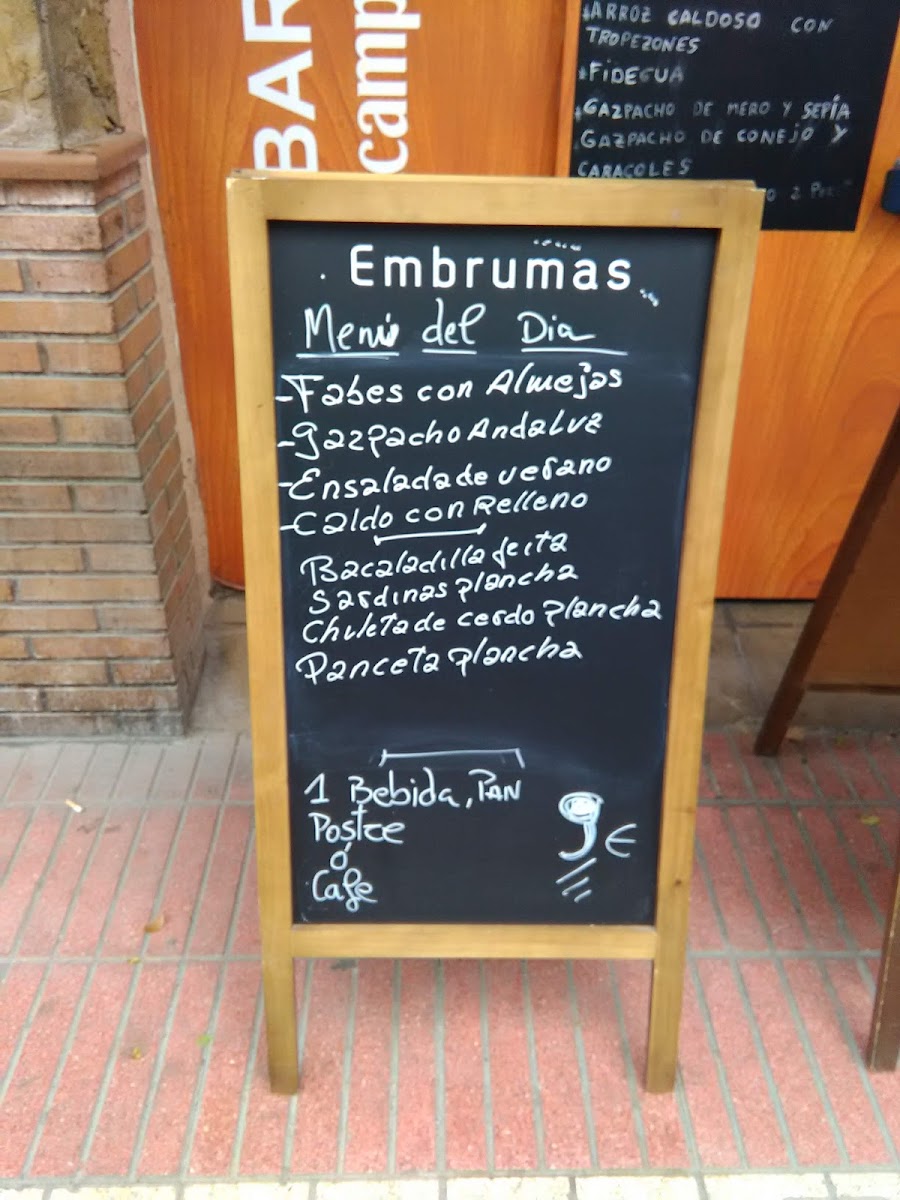 BAR
camp
ARROZ CALDOSO CON
TROPEZONES
*FIDEGUA
*GAZPACHO DE MERO Y SEPÍA
GAZPACHO DE CONEJO Y
CARACOLES
2
Embrumas
Menú del Dia
-Fabes con Almejas
-Gazpacho Andaluz
-Ensalada de verano
-Caldo con Relleno
Bacaladilla frita
Sardinas plancha
Chuleta de cerdo plancha
Panceta plancha
1 Bebida, PAN
Postre
ó
Cafe
9 €